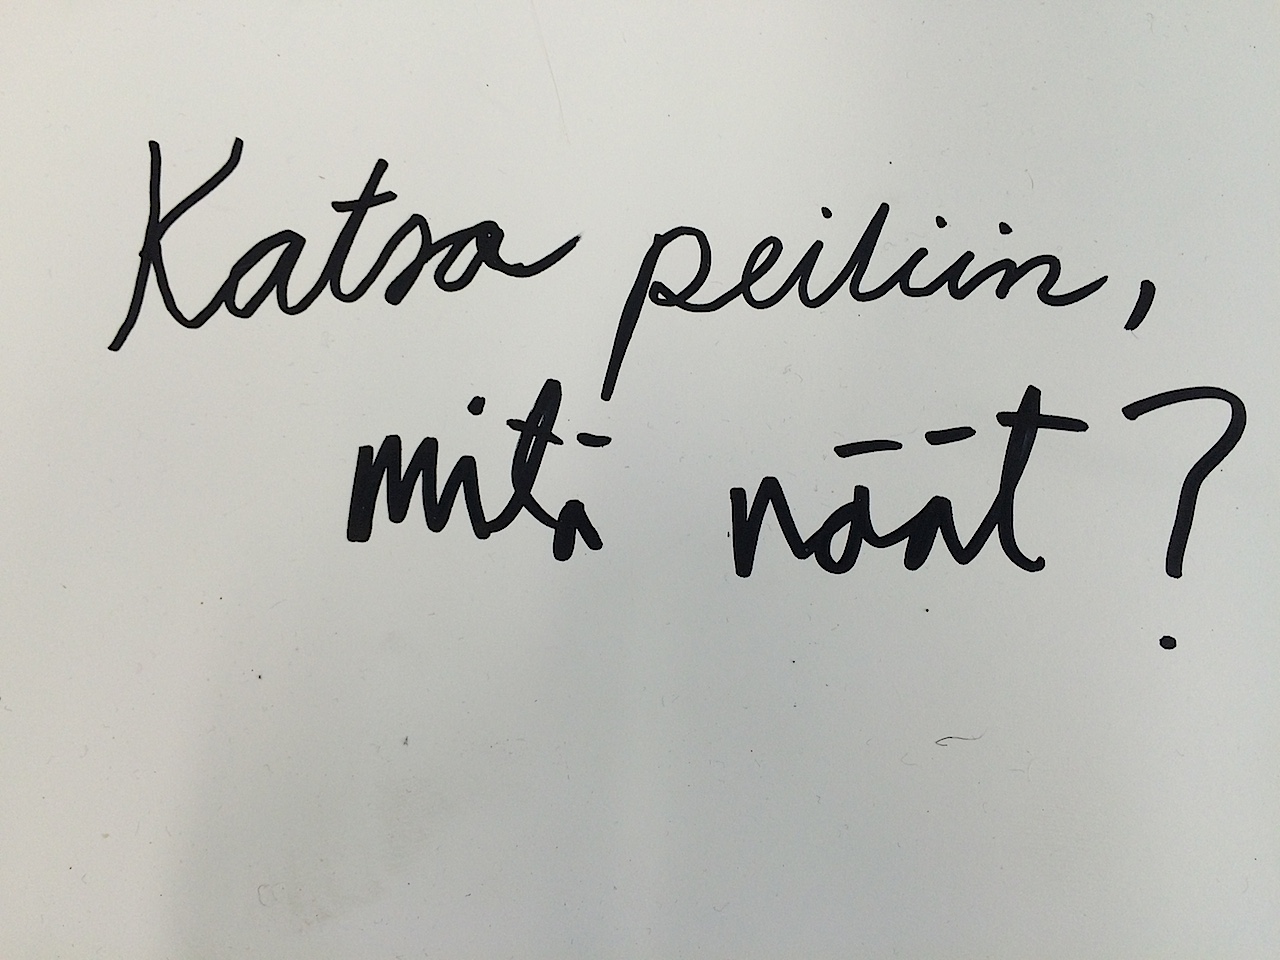 Katsa peiliin,
mitä näät?